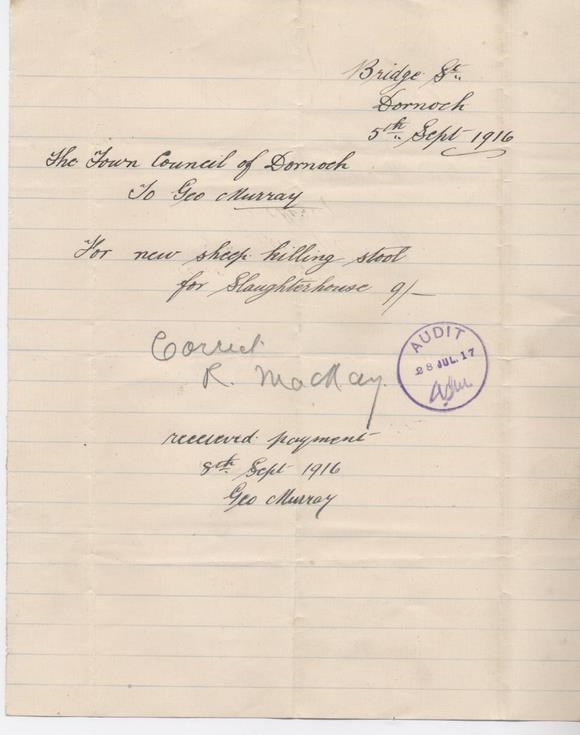 Bridge St
Dornoch
5th Sept 1916
The Town Council of Dornoch
To Geo Murray
For new sheep killing stool
for Slaughterhouse 9/-
Correct
R. MacKay.
AUDIT
28 JUL. 17
received payment
8th Sept 1916
Geo Murray